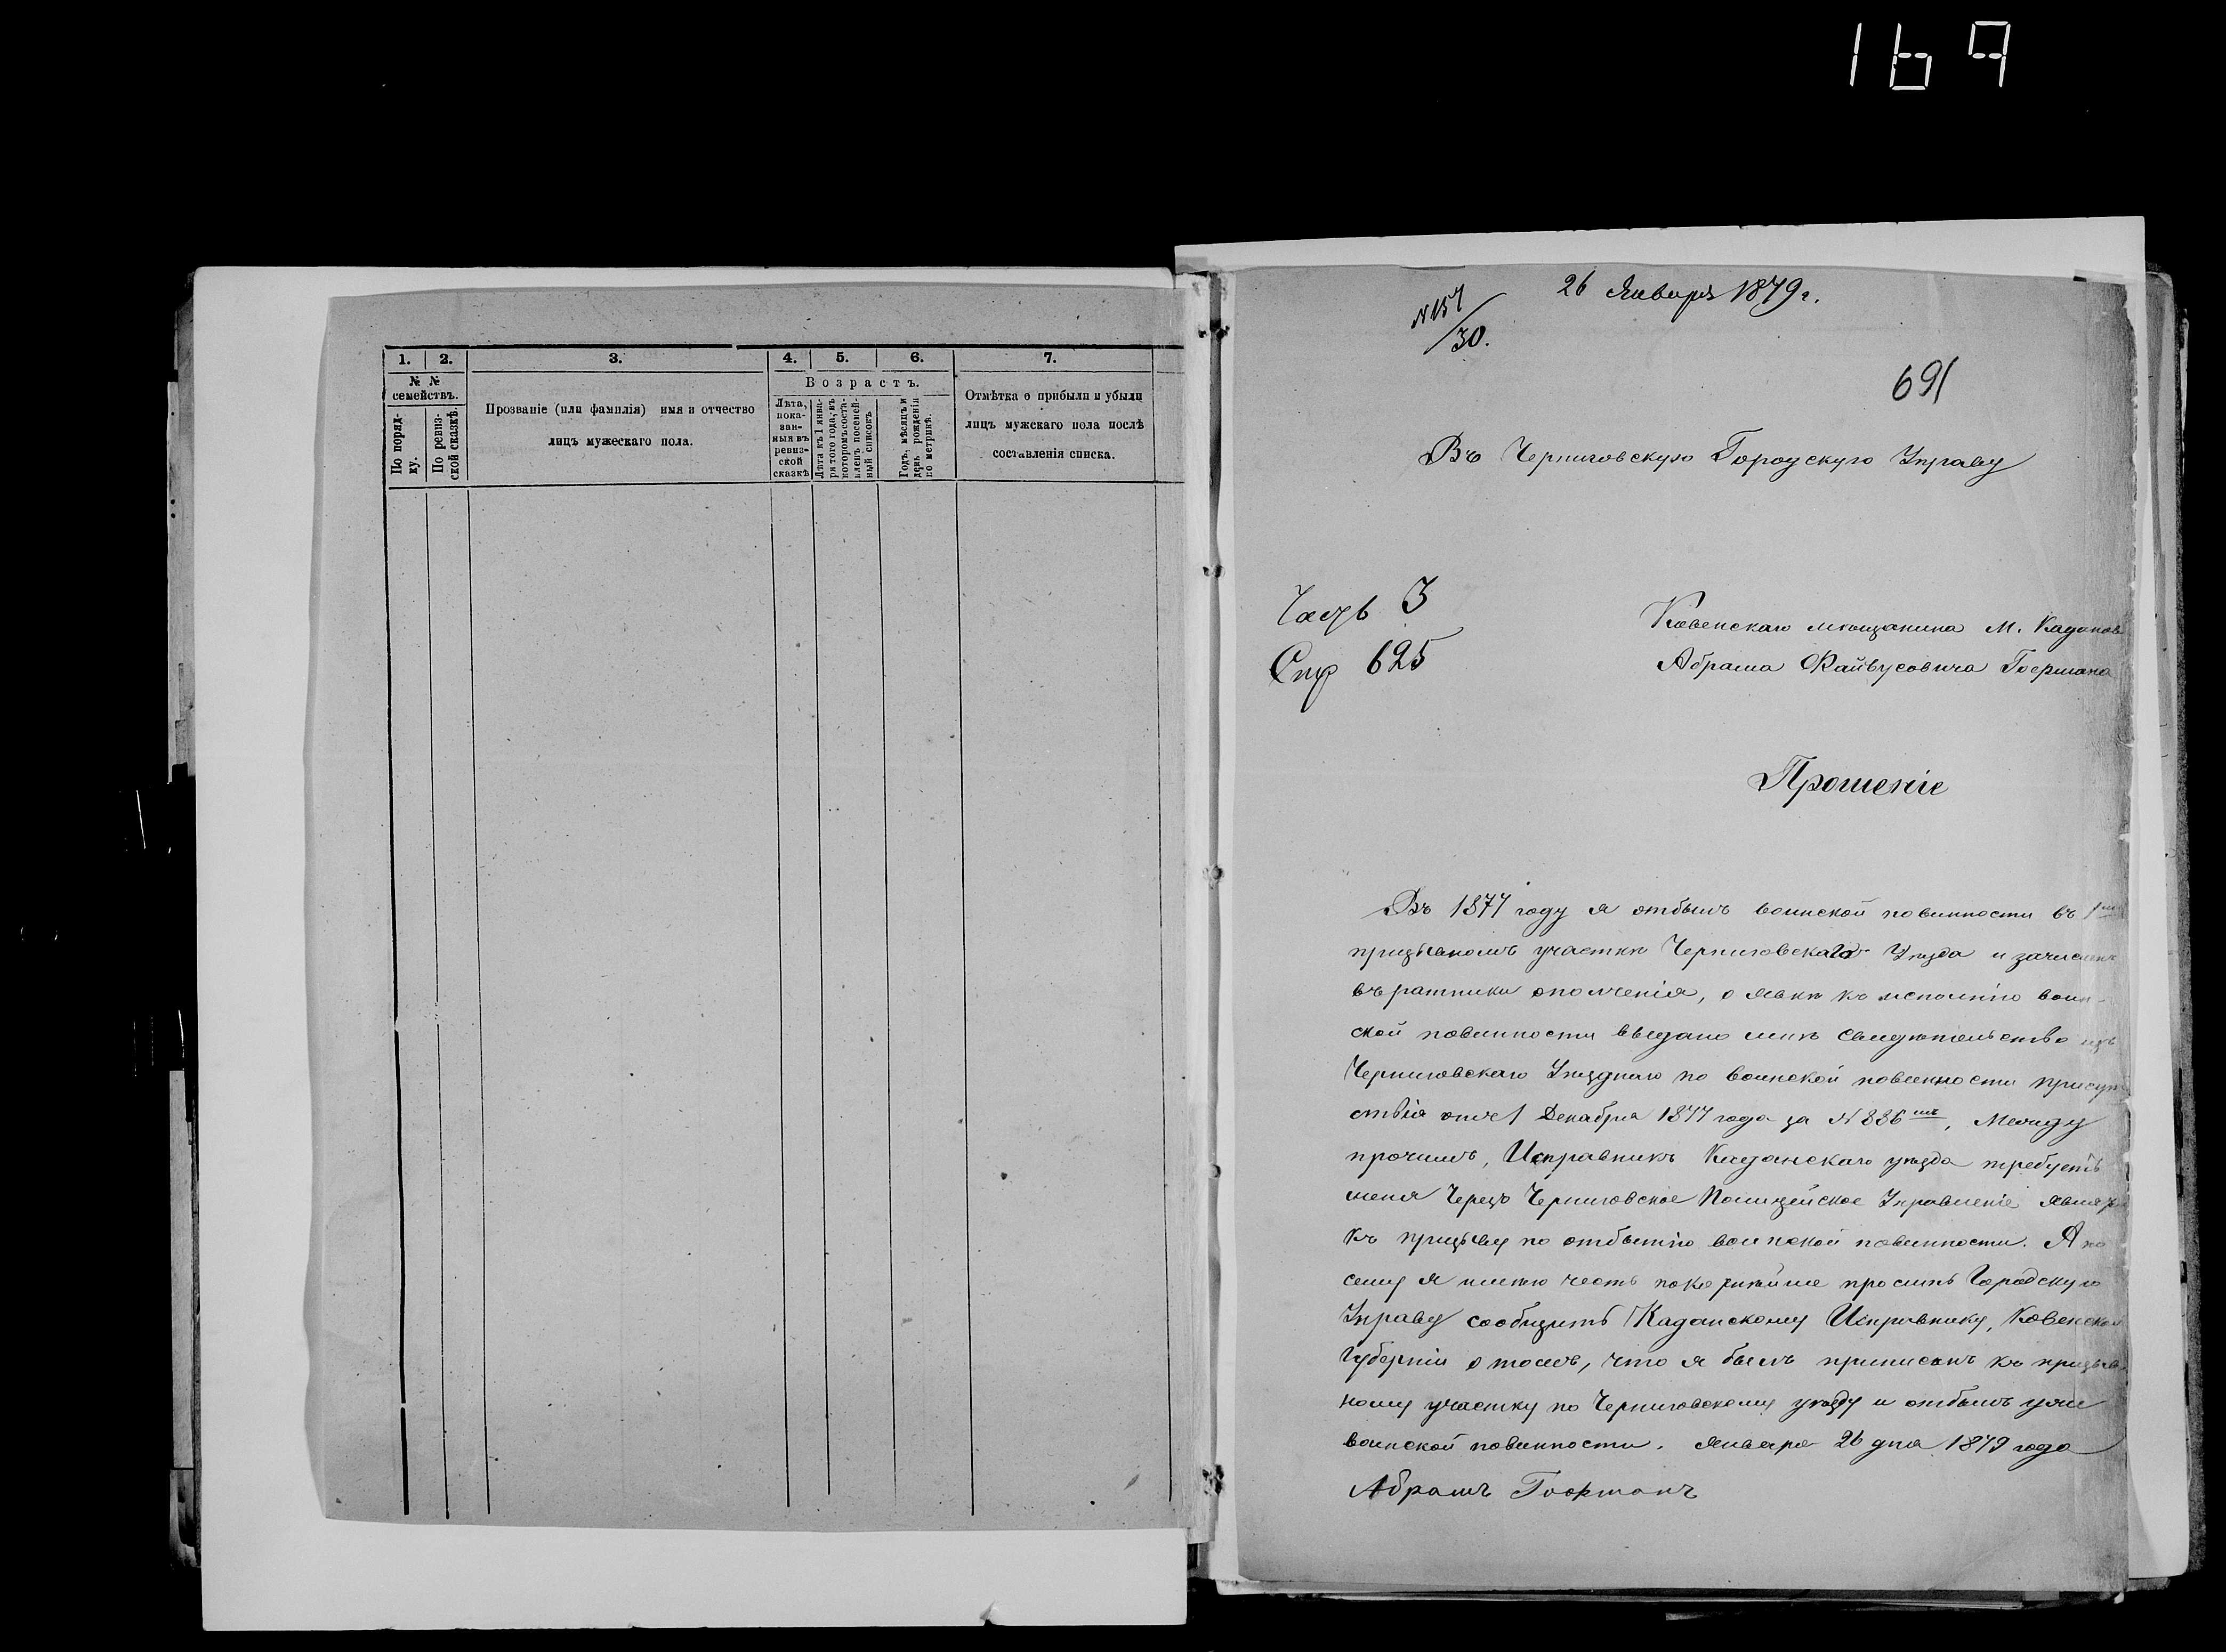 169
1. 2. 3. 4. 5. 6. 7.
№ №
семействъ.
По поряд-
ку.
По ревиз-
ской сказкѣ.
Прозваніе (или фамилія) имя и отчество
лицъ мужескаго пола.
Возрастъ.
Лѣта,
пока-
зан-
ныя въ
ревиз-
ской
сказкѣ
Лѣта къ 1 янва-
ря того года, въ
которомъ соста-
вленъ посемей-
ный списокъ
Годъ, мѣсяцъ и
день рожденія
по метрикѣ.
Отмѣтка о прибыли и убыли
лицъ мужскаго пола послѣ
составленія списка.
26 Января 1879 г.
N 157
/30.
691
Въ Черниговскую Городскую Управу
Часть 3
Стр 625
Ковенскаго мѣщанина М. Каданов
Абрама Файвусовича Гоермана
Прошеніе
Въ 1877 году я отбылъ воинской повинности въ 1мъ
призывномъ участкѣ Черниговскаго Уѣзда и зачисленъ
въ ратники ополченія, о явкѣ къ исполнію воин-
ской повинности выдано мнѣ свидѣтельство изъ
Черниговскаго Уѣзднаго по воинской повинности присут
ствія отъ 1 Декабря 1877 года за N 886 мъ, Между
прочимъ, Исправникъ Каданскаго уѣзда требуетъ
меня Черезъ Черниговское Полицейское Управленіе явит
къ призыву по отбытію воинской повинности. А по
сему я имѣю честь покорнѣйше просить Городскую
Управу сообщить Каданскому Исправнику, Ковенской
Губерніи о томъ, что я былъ приписанъ къ призыв
ному участку по Черниговскому уѣзду и отбылъ уже
воинской повинности. Января 26 дня 1879 года
Абрамъ Гоерманъ